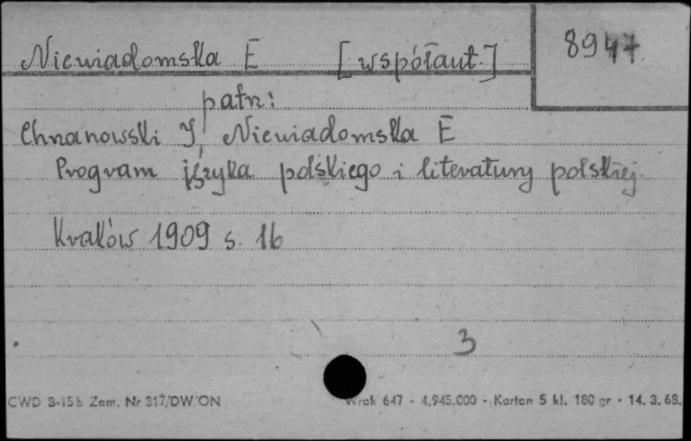 Niewiadomska E [współaut.] 8947
patrz:
Chrzanowski I, Niewiadomska E
Program języka polskiego i literatury polskiej.
Kraków 1909 s. 16
3
CWD 3-15b Zam. Nr 317/DW/ON Wrak 647 - 4.945.000 - Karton 5 kl. 180 gr - 14. 3. 68.